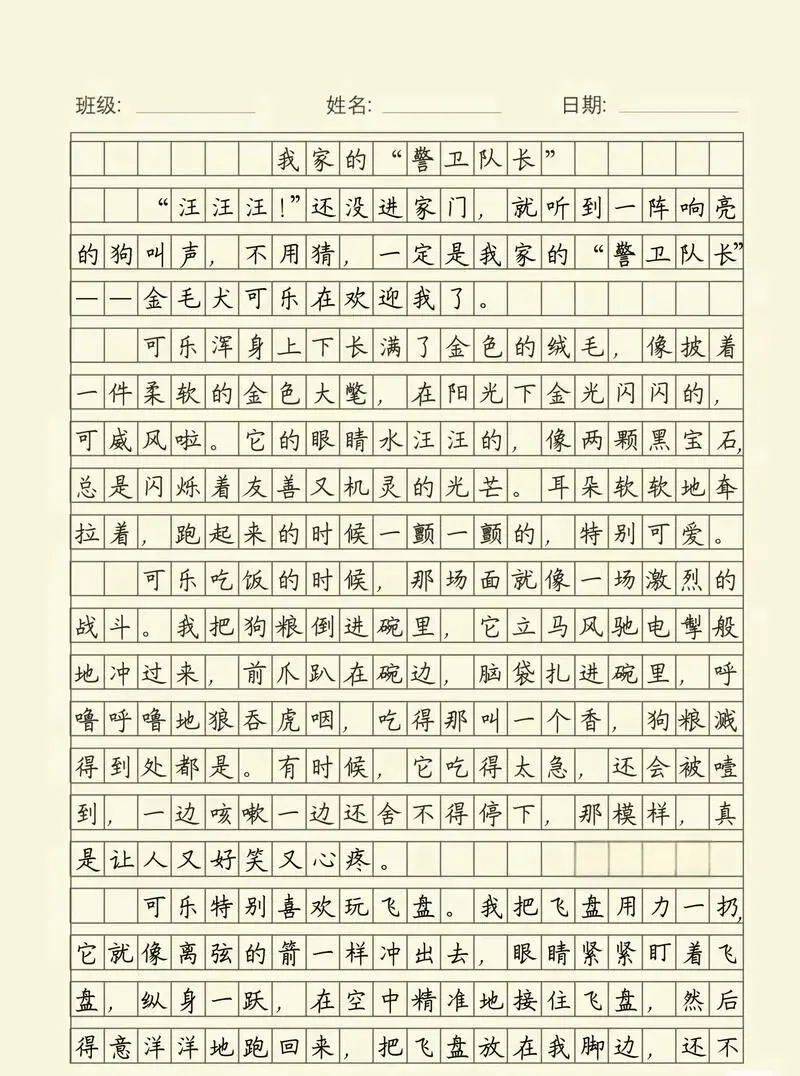 班级: 姓名: 日期:
我家的“警卫队长”
“汪汪汪!”还没进家门，就听到一阵响亮
的狗叫声，不用猜，一定是我家的“警卫队长”
——金毛犬可乐在欢迎我了。
可乐浑身上下长满了金色的绒毛，像披着
一件柔软的金色大氅，在阳光下金光闪闪的，
可威风啦。它的眼睛水汪汪的，像两颗黑宝石，
总是闪烁着友善又机灵的光芒。耳朵软软地耷
拉着，跑起来的时候一颤一颤的，特别可爱。
可乐吃饭的时候，那场面就像一场激烈的
战斗。我把狗粮倒进碗里，它立马风驰电掣般
地冲过来，前爪趴在碗边，脑袋扎进碗里，呼
噜呼噜地狼吞虎咽，吃得那叫一个香，狗粮溅
得到处都是。有时候，它吃得太急，还会被噎
到，一边咳嗽一边还舍不得停下，那模样，真
是让人又好笑又心疼。
可乐特别喜欢玩飞盘。我把飞盘用力一扔，
它就像离弦的箭一样冲出去，眼睛紧紧盯着飞
盘，纵身一跃，在空中精准地接住飞盘，然后
得意洋洋地跑回来，把飞盘放在我脚边，还不